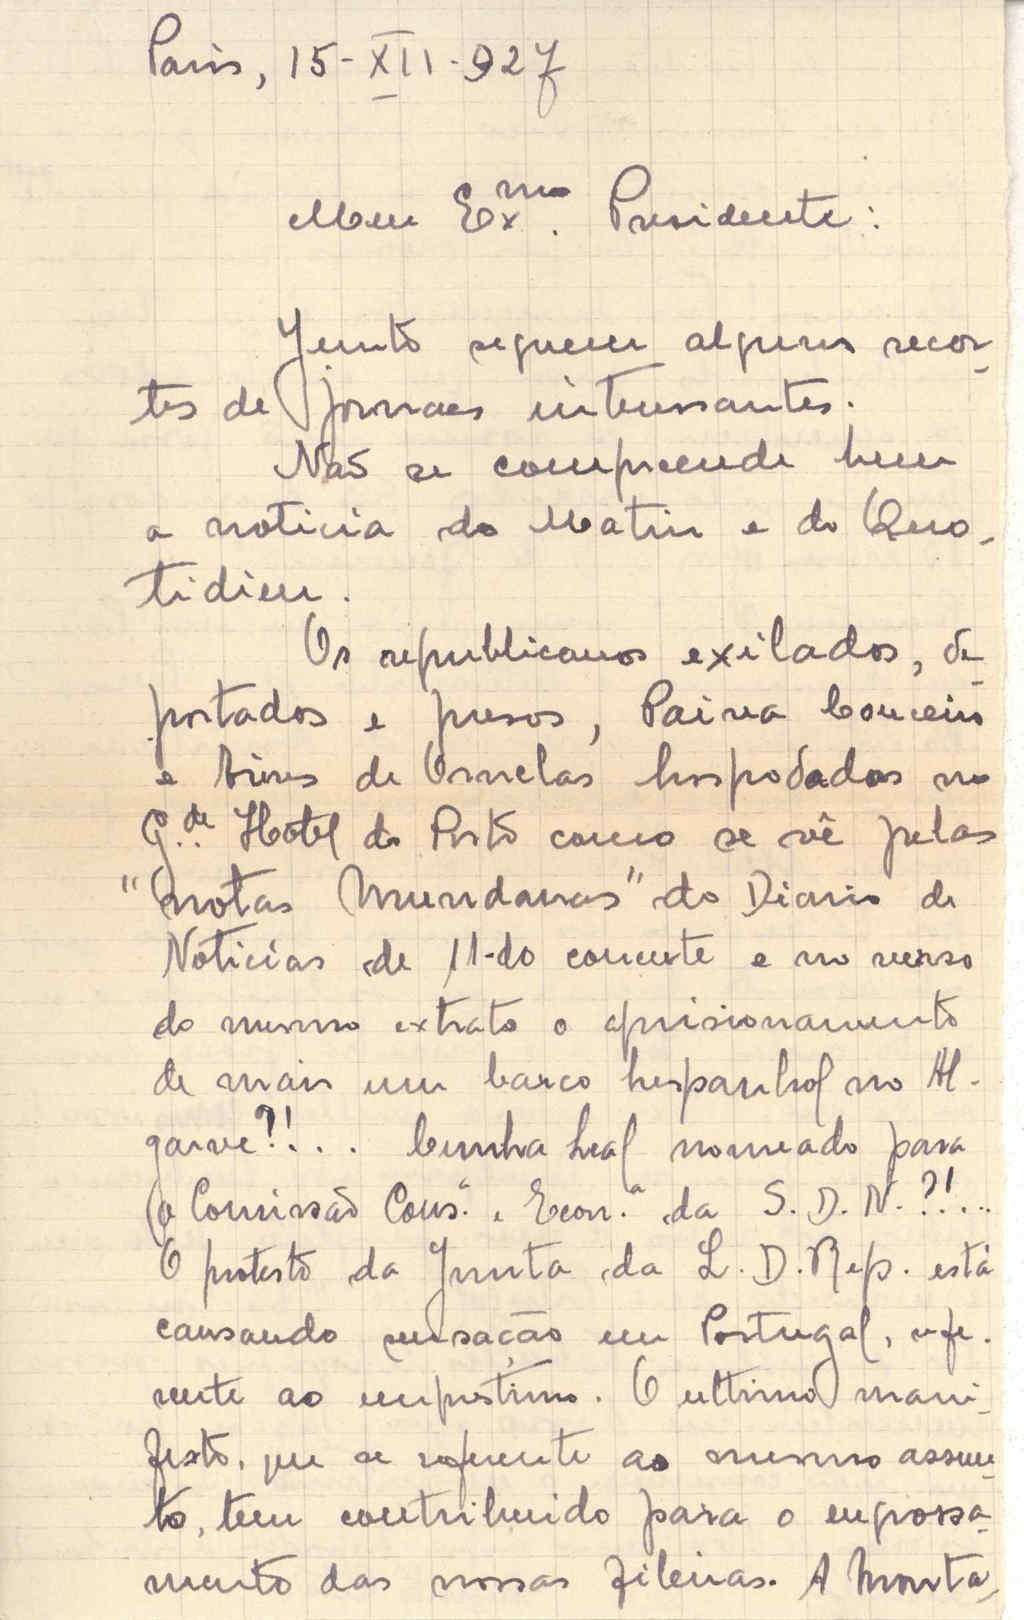 Paris, 15-XII-927
Meu Exmo. Presidente:
Junto seguem alguns recor-
tes de jornaes interessantes.
Não se compreende bem
a noticia do Matin e do Quo-
tidien.
Os republicanos exilados, de-
portados e presos, Paiva Couceiro
e Aires de Ornelas hospedados no
G.de Hotel do Porto como se vê pelas
"notas Mundanas" do Diario de
Noticias de 11-do corrente e no verso
do mesmo extrato o aprisionamento
de mais um barco hespanhol no Al-
garve?!... Cunha Leal nomeado para
a Comissão Cons.a e Econ.a da S.D.N.?!...
O protesto da Junta da L.D.Rep. está
causando sensação em Portugal, refe-
rente ao emprestimo. O ultimo mani-
festo, que se referente ao mesmo assun-
to, tem contribuido para o engrossa-
mento das nossas fileiras. A Monta-